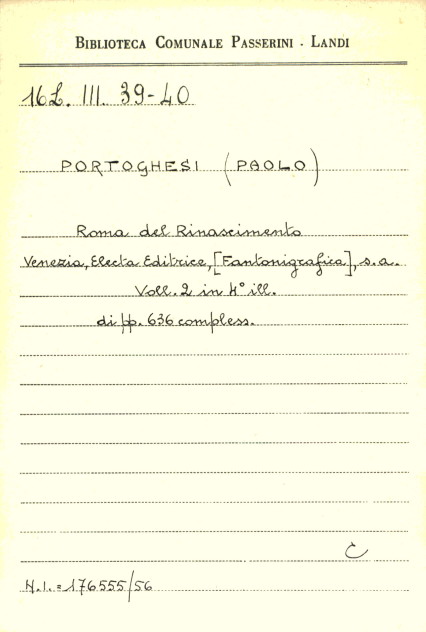 BIBLIOTECA COMUNALE PASSERINI - LANDI
16L. III. 39-40
PORTOGHESI (PAOLO)
Roma del Rinascimento
Venezia, Electa Editrice, [Fantonigrafica], s.a.
Voll. 2 in 4° ill.
di pp. 636 compless.
C
N.I. = 176555/56